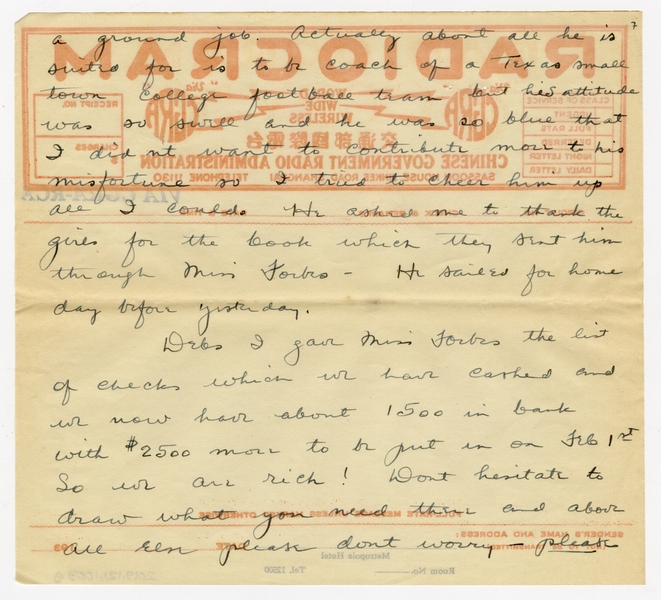 7
a ground job. Actually about all he is
suited for is to be coach of a Texas small
town College football team but his attitude
was so swell and he was so blue that
I did nt want to contribute more to his
misfortune so I tried to cheer him up
all I could. He asked me to thank the
girls for the book which they sent him
through Miss Forbes - He sailed for home
day before yesterday.
Debs I gave Miss Forbes the list
of checks which we have cashed and
we now have about 1500 in bank
with $2500 more to be put in on Feb 1st
So we are rich! Dont hesitate to
draw what you need there and above
all else please dont worry - please
RADIOGRAM
Via
Via
WORLD
WIDE
WIRELESS
CGRA
CGRA
RECEIPT NO.
CHARGES
CLASS OF SERVICE
FULL RATE
DEFERRED
NIGHT LETTER
DAILY LETTER
交通部國際電台
CHINESE GOVERNMENT RADIO ADMINISTRATION
TELEPHONE 11130
VIA CGRA-RCA
SENDER'S NAME AND ADDRESS:
(NOT TO BE TRANSMITTED)
DATE
193
Metropole Hotel
Room No.
Tel. 12500